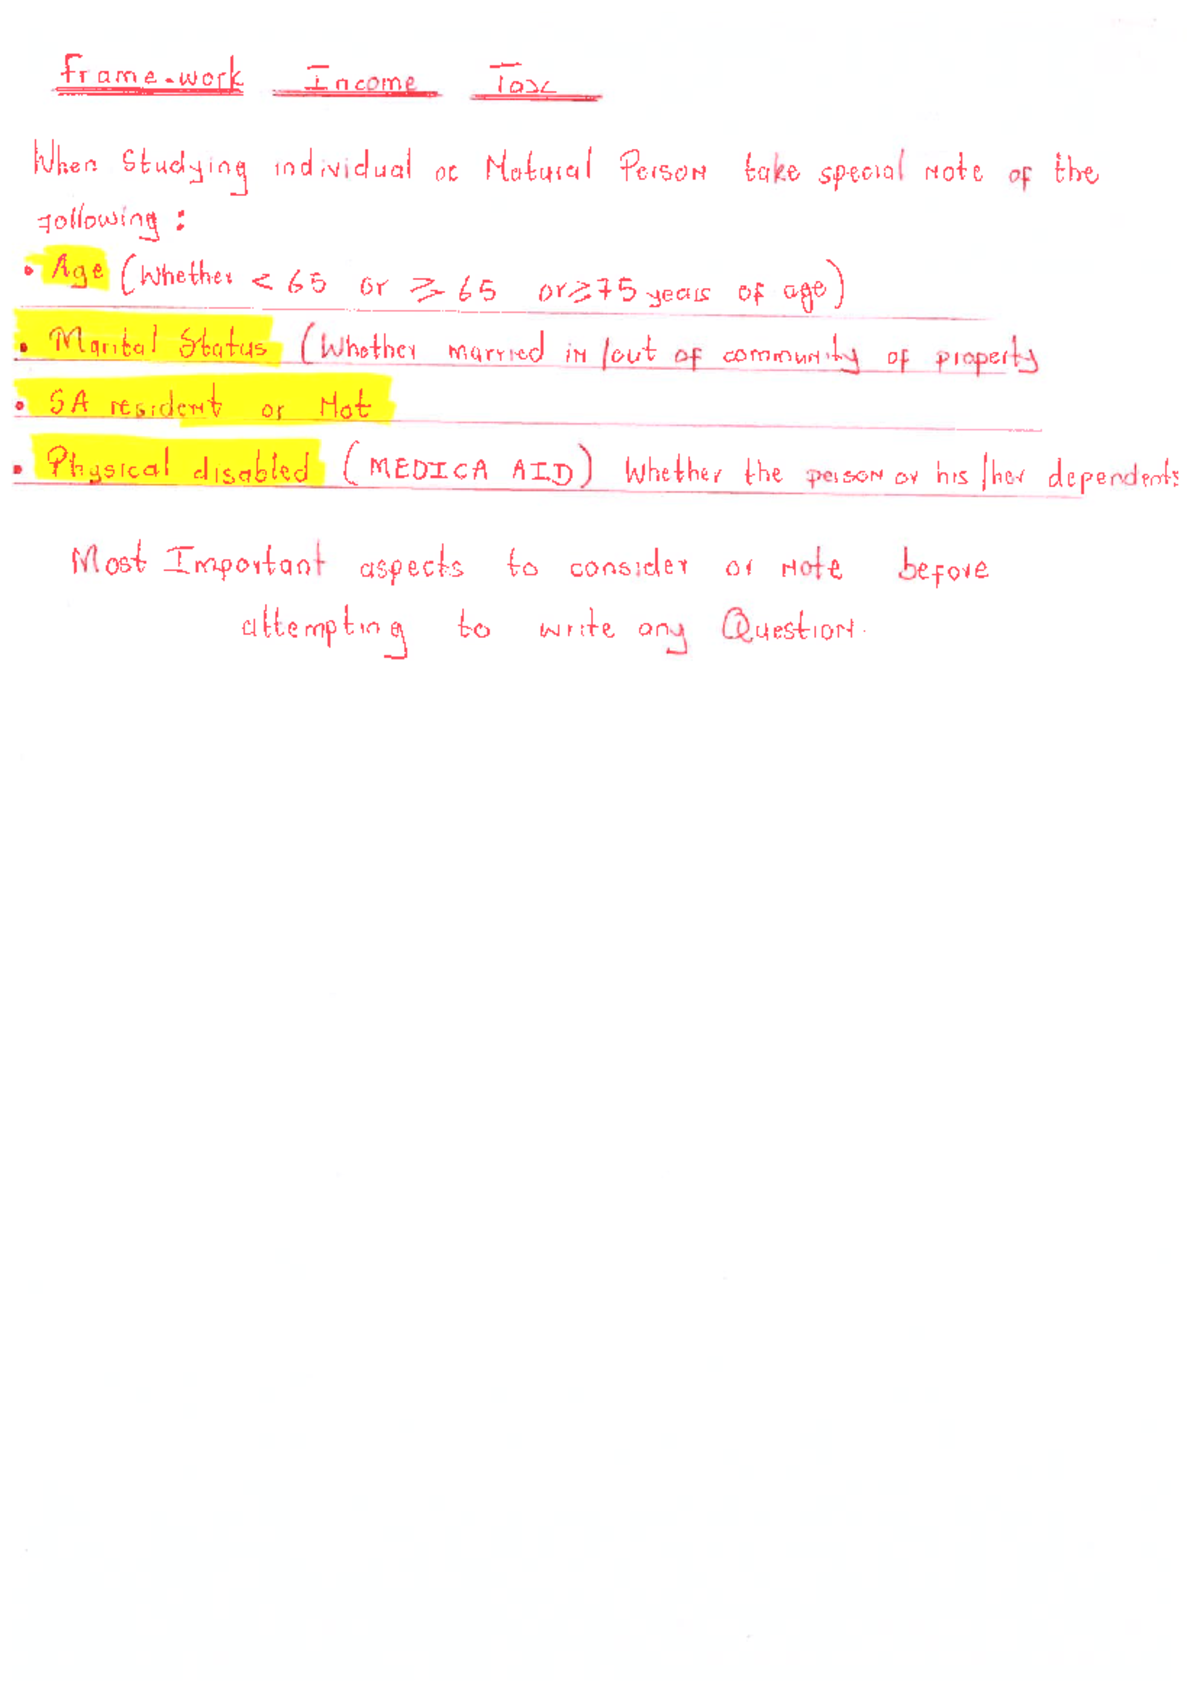 Frame-work Income Tax
When Studying individual or Natural Person take special note of the
following :
• Age (Whether < 65 or ≥ 65 or ≥ 75 years of age)
• Marital Status (Whether married in/out of community of property
• SA resident or Not
• Physical disabled (MEDICA AID) Whether the person or his/her dependents
Most Important aspects to consider or note before
attempting to write any Question.